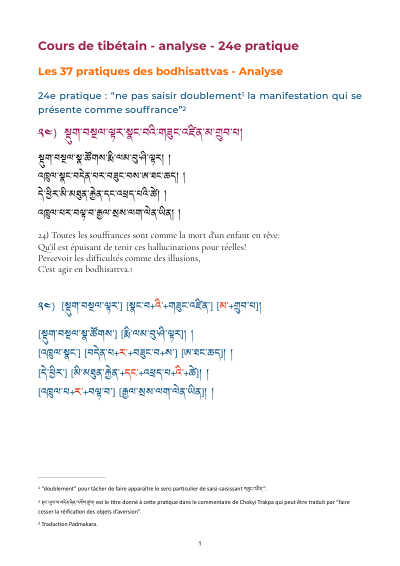 Cours de tibétain - analyse - 24e pratique
Les 37 pratiques des bodhisattvas - Analyse
24e pratique : "ne pas saisir doublement¹ la manifestation qui se
présente comme souffrance"²
༢༤) སྡུག་བསྔལ་ལྟར་སྣང་བའི་གཟུང་འཛིན་མ་གྲུབ་པ།
སྡུག་བསྔལ་སྣ་ཚོགས་རྨི་ལམ་བུ་ཤི་ལྟར། །
འཁྲུལ་སྣང་བདེན་པར་བཟུང་བས་ཨ་ཐང་ཆད། །
དེ་ཕྱིར་མི་མཐུན་རྐྱེན་དང་འཕྲད་པའི་ཚེ། །
འཁྲུལ་པར་བལྟ་བ་རྒྱལ་སྲས་ལག་ལེན་ཡིན། །
24) Toutes les souffrances sont comme la mort d'un enfant en rêve:
Qu'il est épuisant de tenir ces hallucinations pour réelles!
Percevoir les difficultés comme des illusions,
C'est agir en bodhisattva.³
༢༤) [སྡུག་བསྔལ་ལྟར་] [སྣང་བ+འི་+གཟུང་འཛིན་] [མ་+གྲུབ་པ]།
[སྡུག་བསྔལ་སྣ་ཚོགས་] [རྨི་ལམ་བུ་ཤི་ལྟར]། །
[འཁྲུལ་སྣང་] [བདེན་པ+ར་+བཟུང་བ+ས་] [ཨ་ཐང་ཆད]། །
[དེ་ཕྱིར་] [མི་མཐུན་རྐྱེན་+དང་+འཕྲད་པ+འི་+ཚེ]། །
[འཁྲུལ་པ+ར་+བལྟ་བ་] [རྒྱལ་སྲས་ལག་ལེན་ཡིན]། །
¹ "doublement" pour tâcher de faire apparaître le sens particulier de saisi-saisissant གཟུང་འཛིན་".
² est le titre donné à cette pratique dans le commentaire de Chokyi Trakpa qui peut être traduit par "faire
cesser la réification des objets d'aversion".
³ Traduction Padmakara.
1